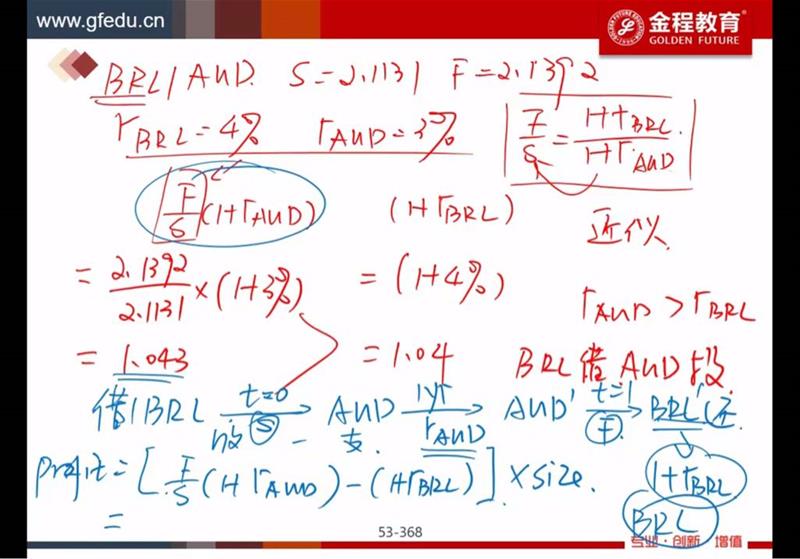 www.gfedu.cn
金程教育®
GOLDEN FUTURE
BRL/AUD S=2.1131 F=2.1392
rBRL=4% rAUD=3%
F/S = 1+rBRL / 1+rAUD
F/S (1+rAUD) (1+rBRL)
近似
= 2.1392/2.1131 × (1+3%) = (1+4%)
rAUD > rBRL
= 1.043 = 1.04
BRL借 AUD投
借1BRL t=0 S AUD 1yr rAUD AUD' t=1 F BRL' 还
收 支
profit = [F/S (1+rAUD) - (1+rBRL)] × size.
1+rBRL
=
BRL
53-368
专业·创新 增值